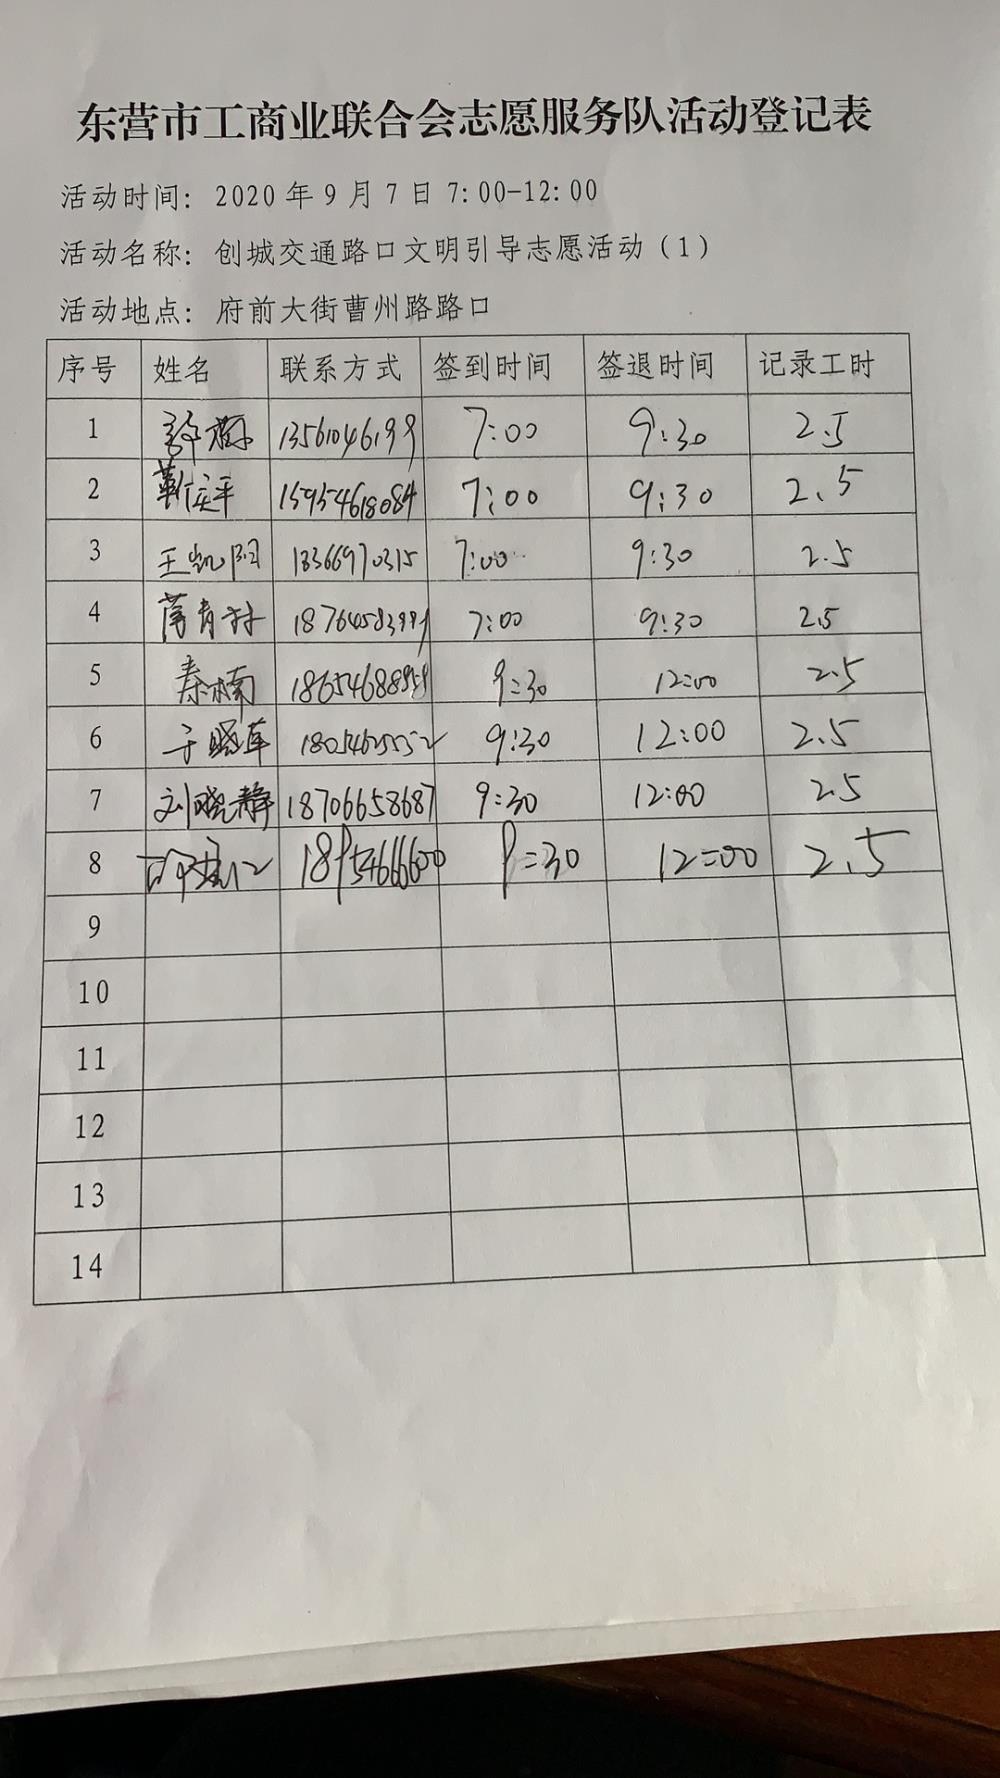 东营市工商业联合会志愿服务队活动登记表
活动时间：2020年9月7日7:00-12:00
活动名称：创城交通路口文明引导志愿活动（1）
活动地点：府前大街曹州路路口
序号 姓名 联系方式 签到时间 签退时间 记录工时
1 13561046199 7:00 9:30 2.5
2 15954618084 7:00 9:30 2.5
3 王凯阳 13366970315 7:00 9:30 2.5
4 7:00 9:30 2.5
5 秦楠 9:30 12:00 2.5
6 于晓革 9:30 12:00 2.5
7 刘晓静 18706658687 9:30 12:00 2.5
8 18954666600 9:30 12:00 2.5
9
10
11
12
13
14